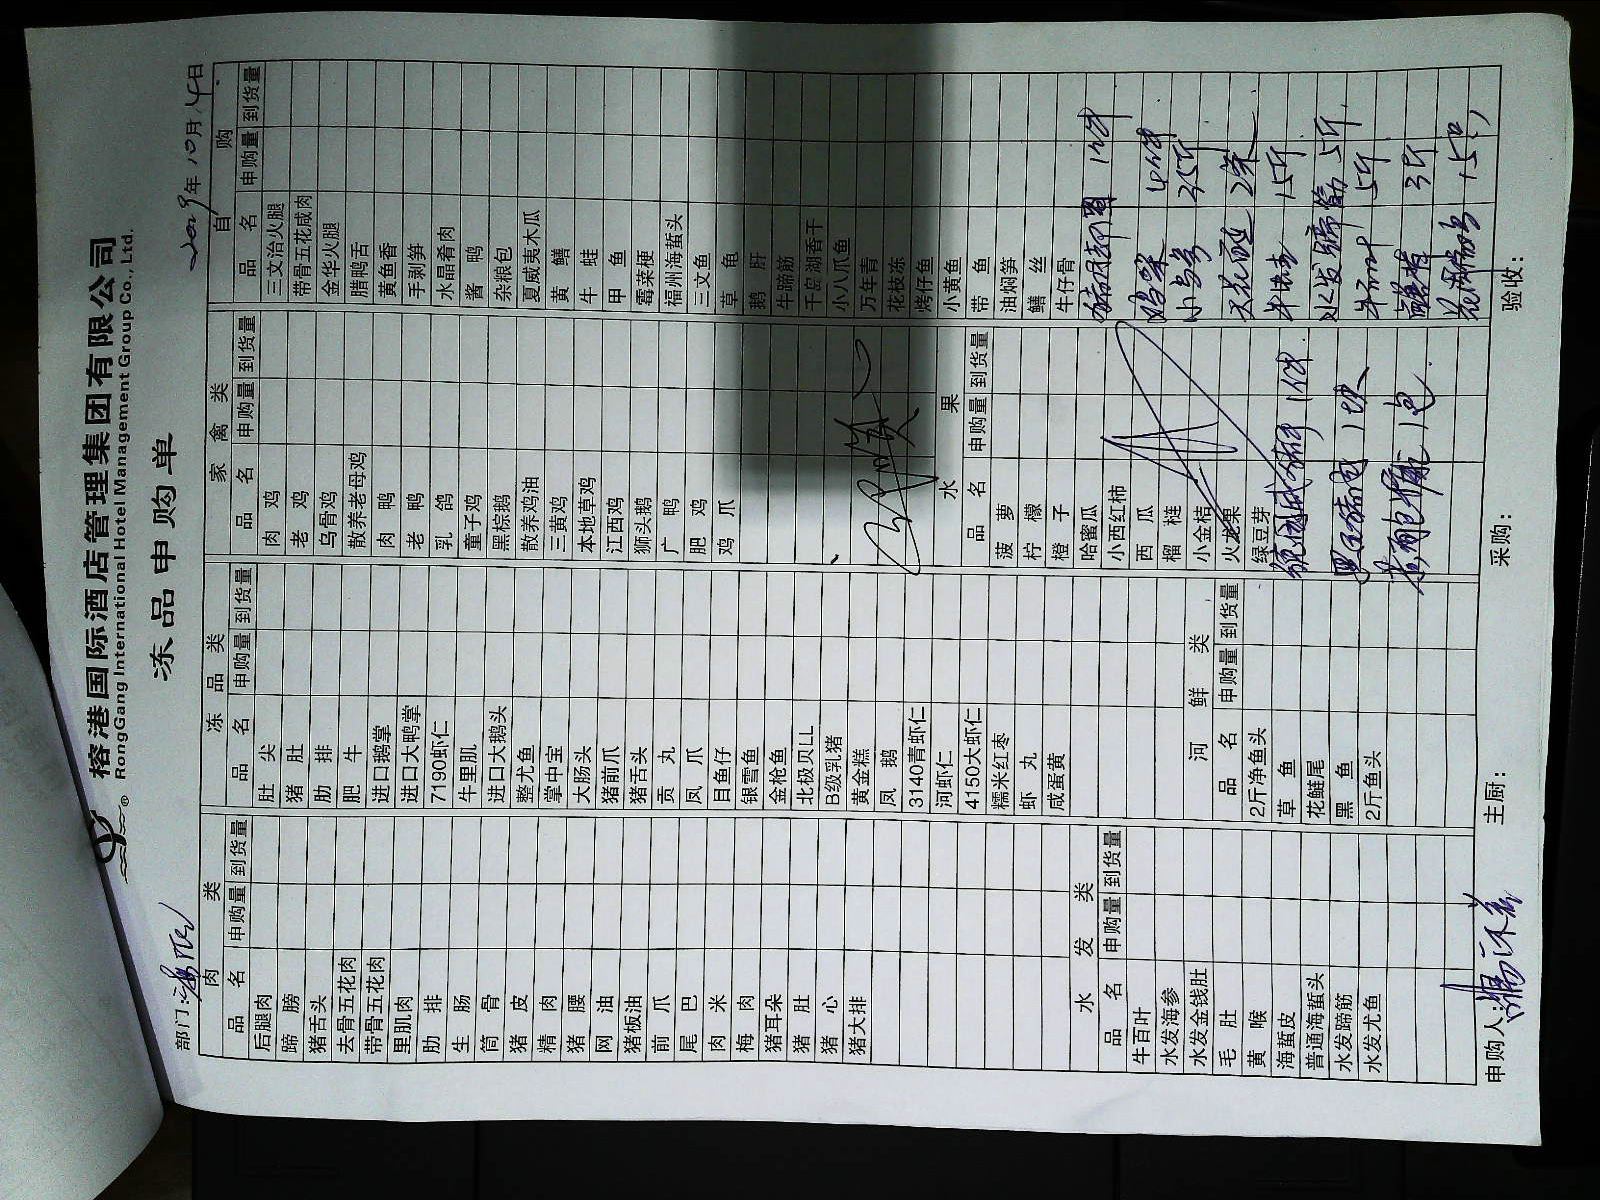 榕港国际酒店管理集团有限公司
RongGang International Hotel Management Group Co., Ltd.
冻品申购单
部门：
2009年10月14日
肉类
品名 申购量 到货量
后腿肉
蹄膀
猪舌头
去骨五花肉
带骨五花肉
里肌肉
肋排
生肠
筒骨
猪皮
精肉
猪腰
网油
猪板油
前爪
尾巴
肉米
梅肉
猪耳朵
猪肚
猪心
猪大排
水发类
品名 申购量 到货量
牛百叶
水发海参
水发金钱肚
毛肚
黄喉
海蜇皮
普通海蜇头
水发蹄筋
水发尤鱼
冻品类
品名 申购量 到货量
肚尖
猪肚
肋排
肥牛
进口鹅掌
进口大鸭掌
7190虾仁
牛里肌
进口大鹅头
整尤鱼
掌中宝
大肠头
猪前爪
猪舌头
贡丸
凤爪
目鱼仔
银雪鱼
金枪鱼
北极贝LL
B级乳猪
黄金糕
凤鹅
3140青虾仁
河虾仁
4150大虾仁
糯米红枣
虾丸
咸蛋黄
河鲜类
品名 申购量 到货量
2斤净鱼头
草鱼
花鲢尾
黑鱼
2斤鱼头
家禽类
品名 申购量 到货量
肉鸡
老鸡
乌骨鸡
散养老母鸡
肉鸭
老鸭
乳鸽
童子鸡
黑棕鹅
散养鸡油
三黄鸡
本地草鸡
江西鸡
狮头鹅
广鸭
肥鸡
鸡爪
水果
品名 申购量 到货量
菠萝
柠檬
橙子
哈蜜瓜
小西红柿
西瓜
榴梿
小金桔
火龙果
绿豆芽
1件
1包
自购
品名 申购量 到货量
三文治火腿
带骨五花咸肉
金华火腿
腊鸭舌
黄鱼香
手剥笋
水晶肴肉
酱鸭
杂粮包
夏威夷木瓜
黄鳝
牛蛙
甲鱼
霉菜梗
福州海蜇头
三文鱼
草龟
鹅肝
牛蹄筋
千岛湖香干
小八爪鱼
万年青
花枝冻
烤仔鱼
小黄鱼
带鱼
油焖笋
鳝丝
牛仔骨
1件
4件
35斤
2条
15斤
水发蹄筋 5斤
5斤
3斤
申购人：
主厨：
采购：
验收：